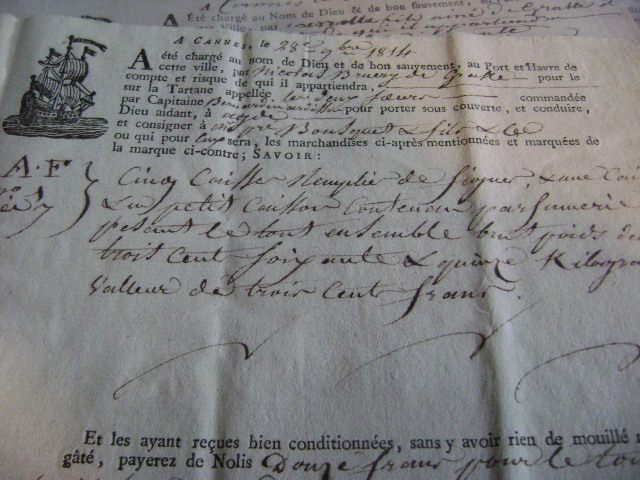 Eté chargé au Nom de Dieu & de bon sauvement, au
A CANNES, le 28e 9bre 1814
A été chargé au nom de Dieu et de bon sauvement, au Port et Havre de
cette ville, par Nicolas Bruery de Grasse pour le
compte et risque de qui il appartiendra,
sur la Tartane appellée les deux soeurs commandée
par Capitaine pour porter sous couverte, et conduire,
Dieu aidant, à agde
et consigner à Bousquet & fils & Cie
ou qui pour eux sera, les marchandises ci-après mentionnées et marquées de
la marque ci-contre; SAVOIR:
A. F.
Cinq Caisses Remplie de figues, & une Cai
& un petit Caisson Contenant parfumerie
pesant le tout ensemble brut poids de
trois Cent soixante & quinze Kilogra
Valleur de trois Cent francs.
Et les ayant reçues bien conditionnées, sans y avoir rien de mouillé n
gâté, payerez de Nolis Douze francs pour le tou